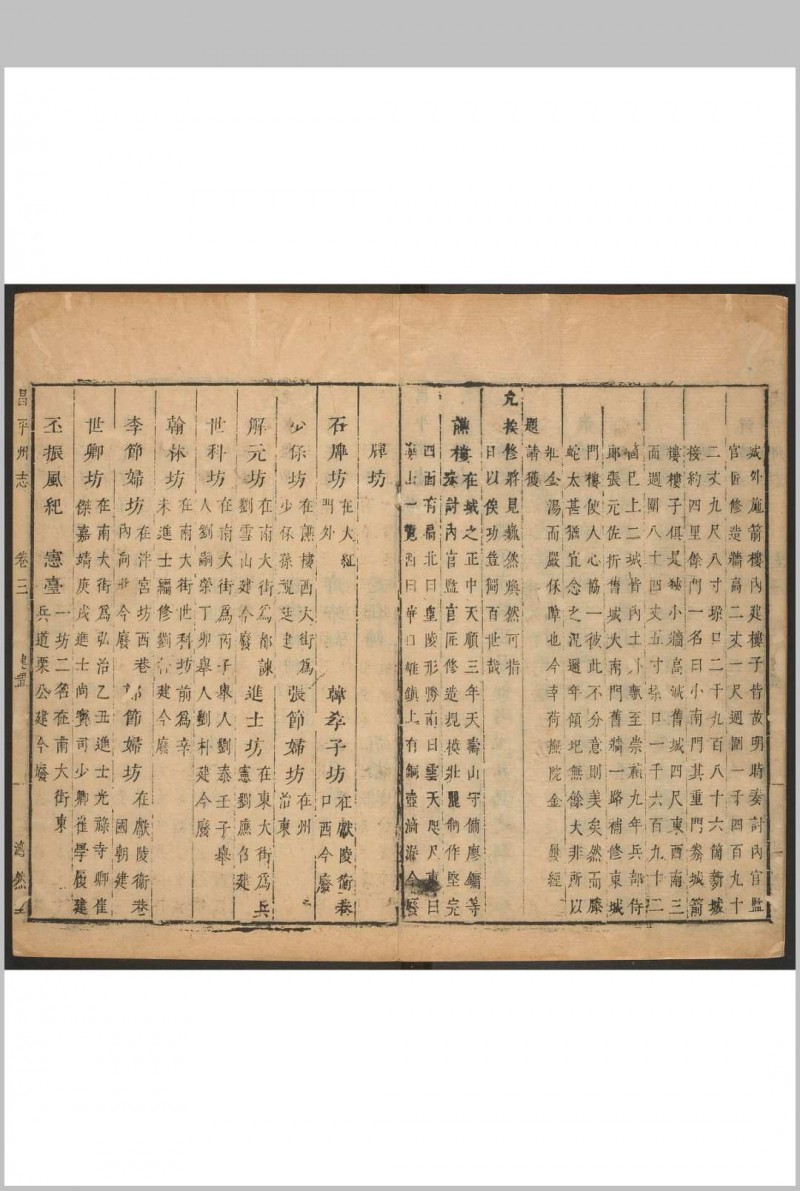 城外施箭樓內建樓子皆故明時奏討內官監
官匠修造牆高二丈一尺週圍一千四百九十
二丈九尺八寸垛口二千九百八十六箇新城
接約四里餘門一名曰小南門其重門券城箭
樓樓子俱 小牆高減舊城四尺東西南三
面週圍八十四丈五寸垛口一千六百九十二
箇已上二城皆內土外甎至崇禎九年兵部侍
郎張元佐折舊城大南門舊牆一路補修東城
門樓使人心協一彼此不分意則美矣然而滕
蛇太甚猶宜念之況邇年傾圯無餘大非所以
壯金湯而嚴保障也今幸荷撫院金 屢經
題請獲
允挨修將見巍然煥然可指
日以俟功豈獨百世哉
譙樓在城之正中天順三年天壽山守備廖鏞等
奏討內官監官匠修造規模壯麗制作堅完
四面有扁北曰皇陵形勝南曰雲天咫尺東曰
華山一覽西曰華 雄鎮上有銅壺滴漏今廢
牌坊
石牌坊在大紅門外 韓孝子坊在獻陵衛巷口西今廢
少保坊在譙樓西大街爲少保孫 建 張節婦坊在州治東
解元坊在南大街爲都諫劉雪山建今廢 進士坊在東大街爲兵憲劉應召建
世科坊在南大街爲丙子舉人劉泰壬子舉人劉嗣榮丁卯舉人劉朴建今廢
翰林坊在南大街世科坊前爲辛未進士編修劉 建今廢
李節婦坊在泮宮坊西巷內向北今廢 節婦坊在獻陵衛巷國朝建
世卿坊在南大街爲弘治乙丑進士光祿寺卿崔傑嘉靖庚戌進士尚寶司少卿崔學履建
丕振風紀 憲臺一坊二名在南大街東兵道栗公建今廢
昌平州志 卷三 建置